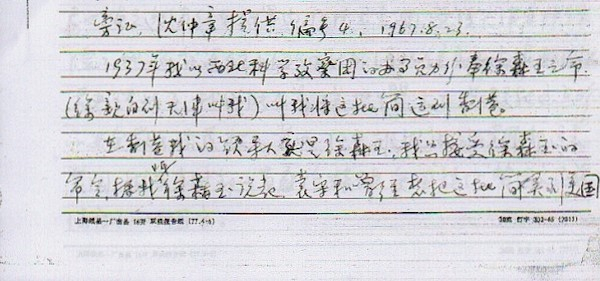 旁证, 沈仲章提供, 编号4, 1967.8.23.
1937年我以西北科学考察团的办事员身份奉徐森玉之命
(徐亲自到天津叫我)叫我将这批简运到香港。
在香港我的领导人就是徐森玉,我只接受徐森玉的
命令,据我听徐森玉说起,袁守和曾经想把这批简卖到美国
上海纸品一厂出品 16开 双线报告纸 (77.4-6) 20行 302-65 (2011)